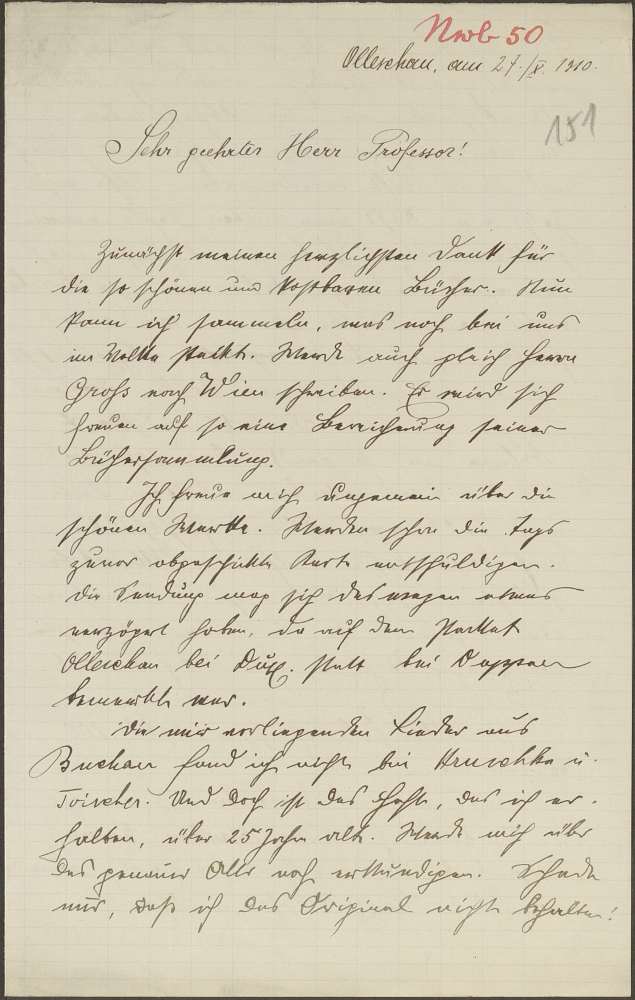 Nwb 50
Olleschau, am 27./X. 1910.
151
Sehr geehrter Herr Professor!
Zunächst meinen herzlichsten Dank für
die so schönen und kostbaren Bücher. Nun
kann ich sammeln, was noch bei uns
im Volke steckt. Werde auch gleich Herrn
Gross nach Wien schreiben. Er wird sich
freuen auf so eine Bereicherung seiner
Büchersammlung.
Ich freue mich ungemein über die
schönen Werke. Werden schon die tags
zuvor abgeschickte Karte entschuldigen.
Die Sendung mag sich deswegen etwas
verzögert haben, da auf dem Packet
Olleschau bei Dux. statt bei
bemerkt war.
Die mir vorliegenden Lieder aus
Buchau fand ich nicht bei Hruschka u.
Toischer. Und doch ist das Heft, das ich er-
halten, über 25 Jahre alt. Werde mich über
das genaue Alter noch erkundigen. Schade
nur, daß ich das Original nicht behalte!